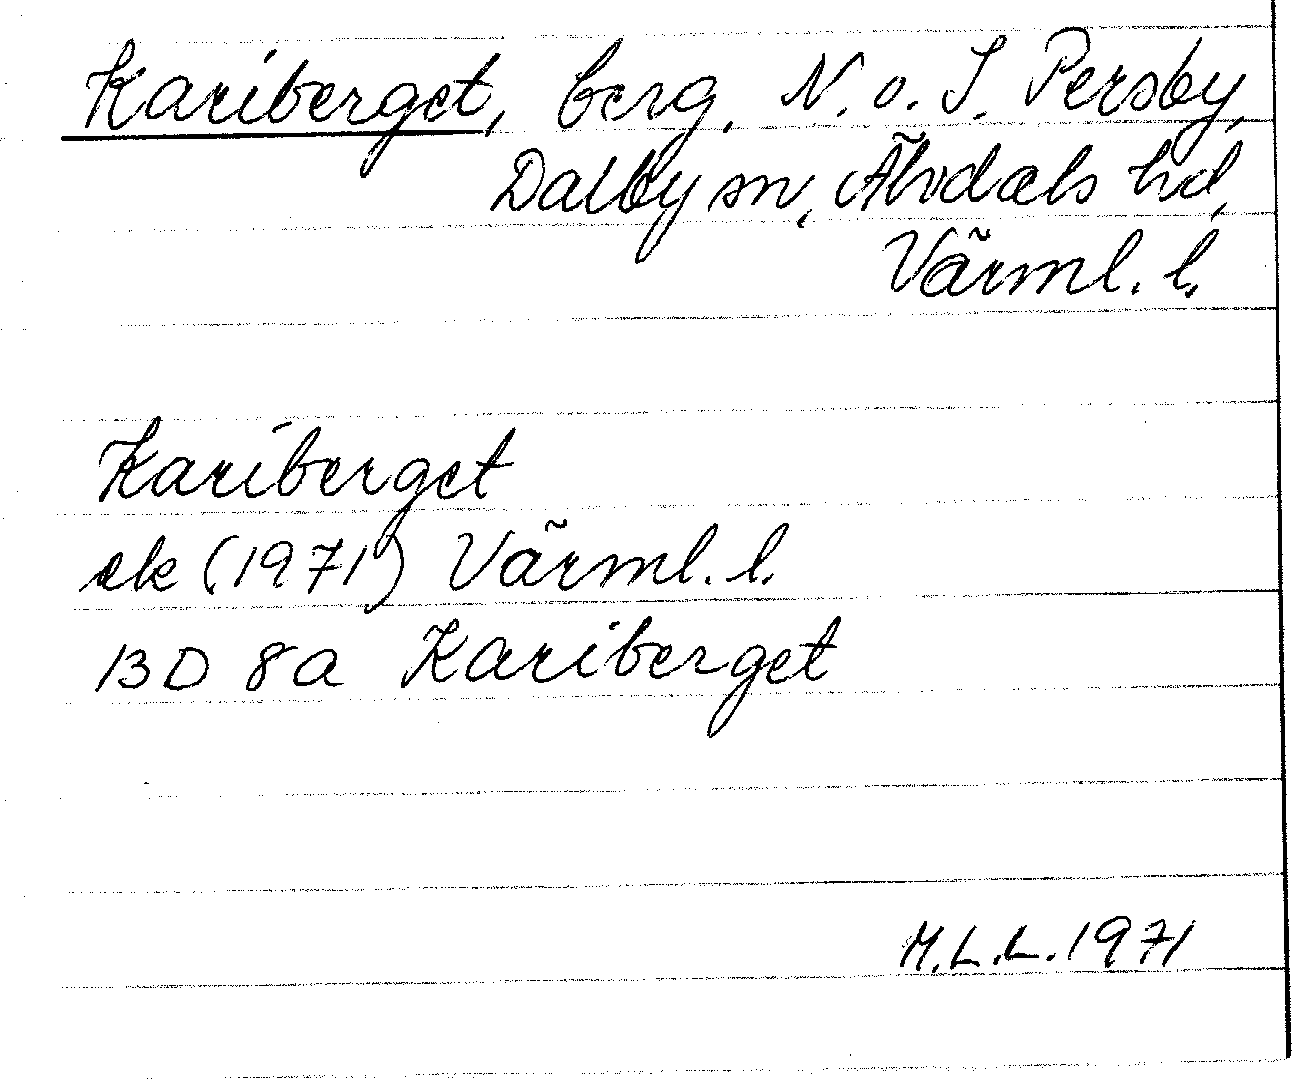 Kariberget, berg, N. o. S. Persby,
Dalby sn, Älvdals hd,
Värml. l.
Kariberget
ek (1971) Värml. l.
13D 8a Kariberget
M.L.L. 1971